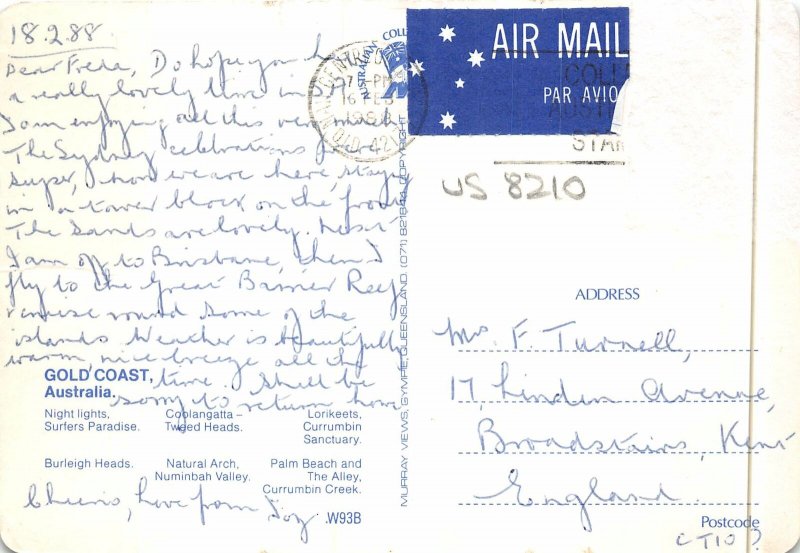 18.2.88
Dear Freda, Do hope you h
a really lovely time in
I am enjoying all this very much
The Sydney celebrations were
super, now we are here, staying
in a tower block on the front
The Sands are lovely. Next
I am off to Brisbane, then I
fly to the Great Barrier Reef
cruise round some of the
islands Weather is beautifully
warm, nice breeze all the
time. Shall be
sorry to return home
Cheerio, love from Joy
GOLD COAST,
Australia.
Night lights,
Surfers Paradise.
Coolangatta –
Tweed Heads.
Lorikeets,
Currumbin
Sanctuary.
Burleigh Heads.
Natural Arch,
Numinbah Valley.
Palm Beach and
The Alley,
Currumbin Creek.
.W93B
MURRAY VIEWS, GYMPIE, QUEENSLAND. (071) 821844. COPYRIGHT
AUSTRALIAN
7 - PM
16 FEB
1988
QLD. 42
AIR MAIL
PAR AVIO
COLL
AUST
STAM
US 8210
ADDRESS
Mrs. F. Turnell,
17, Linden Avenue,
Broadstairs, Kent
England.
Postcode
CT10